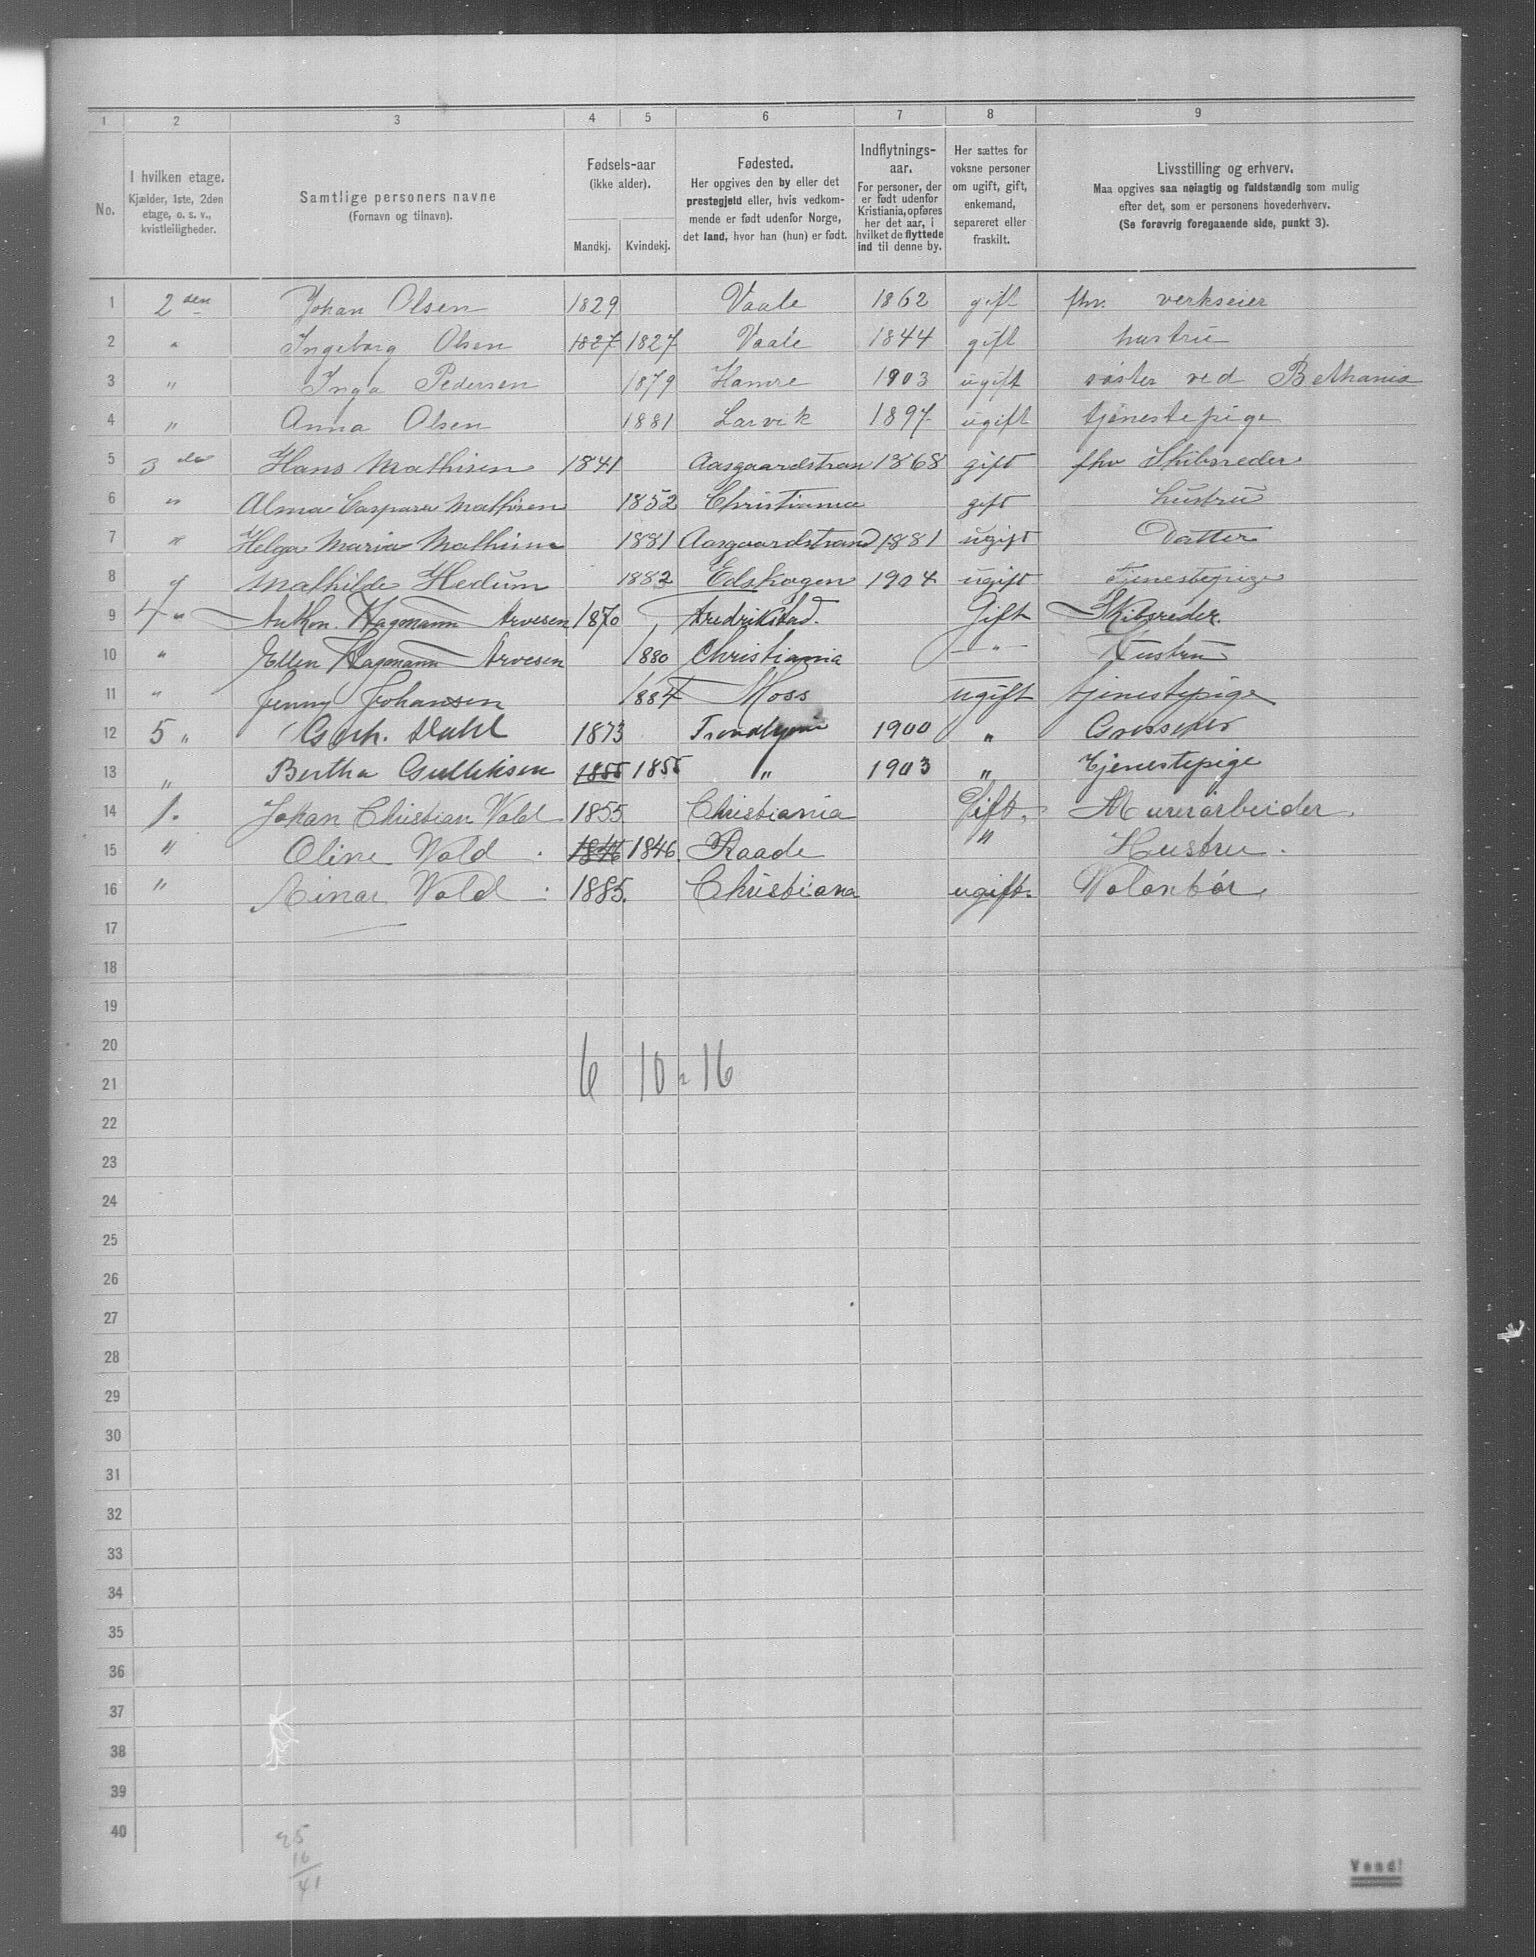 1 2 3 4 5 6 7 8 9
No.
I hvilken etage.
Kjælder, 1ste, 2den
etage, o. s. v.,
kvistleiligheder.
Samtlige personers navne
(Fornavn og tilnavn).
Fødsels-aar
(ikke alder).
Mandkj. Kvindekj.
Fødested.
Her opgives den by eller det
prestegjeld eller, hvis vedkom-
mende er født udenfor Norge,
det land, hvor han (hun) er født.
Indflytnings-
aar.
For personer, der
er født udenfor
Kristiania, opføres
her det aar, i
hvilket de flyttede
ind til denne by.
Her sættes for
voksne personer
om ugift, gift,
enkemand,
separeret eller
fraskilt.
Livsstilling og erhverv.
Maa opgives saa nøiagtig og fuldstændig som mulig
efter det, som er personens hovederhverv.
(Se forøvrig foregaaende side, punkt 3).
1 2den Johan Olsen 1829 Vaale 1862 gift fhv. verkseier
2 " Ingeborg Olsen 1827 1827 Vaale 1844 gift hustru
3 " Inga Pedersen 1879 Hamre 1903 ugift søster ved Bethania
4 " Anna Olsen 1881 Larvik 1897 ugift tjenestepige
5 3de Hans Mathisen 1841 Aasgaardstran 1868 gift fhv Skibsreder
6 " Alma Caspara Mathisen 1852 Christiania gift hustru
7 " Helga Maria Mathisen 1881 Aasgaardstrand 1881 ugift Datter
8 " Mathilde Hedum 1882 Edskogen 1904 ugift Tjenestepige
9 4 " Anthon. Hagmann Arvesen 1870 Fredrikstad. Gift Skibsreder.
10 " Ellen Hagmann Arvesen 1880 Christiania " Hustru
11 " Jenny Johansen 1884 Moss ugift tjenestepige
12 5 " Dahl 1873 Trondhjem 1900 " Grosserer
13 " Bertha Gulliksen 1855 1855 " 1903 " Tjenestepige
14 1. Johan Christian Vold 1855 Christiania Gift. Murerarbeider.
15 " Oline Vold . 1846 1846. Raade " Hustru.
16 " Einar Vold . 1885. Christiana ugift. Volontør.
17
18
19
20
6 10 = 16
21
22
23
24
25
26
27
28
29
30
31
32
33
34
35
36
37
38
39
40
25
16
41
Vend!